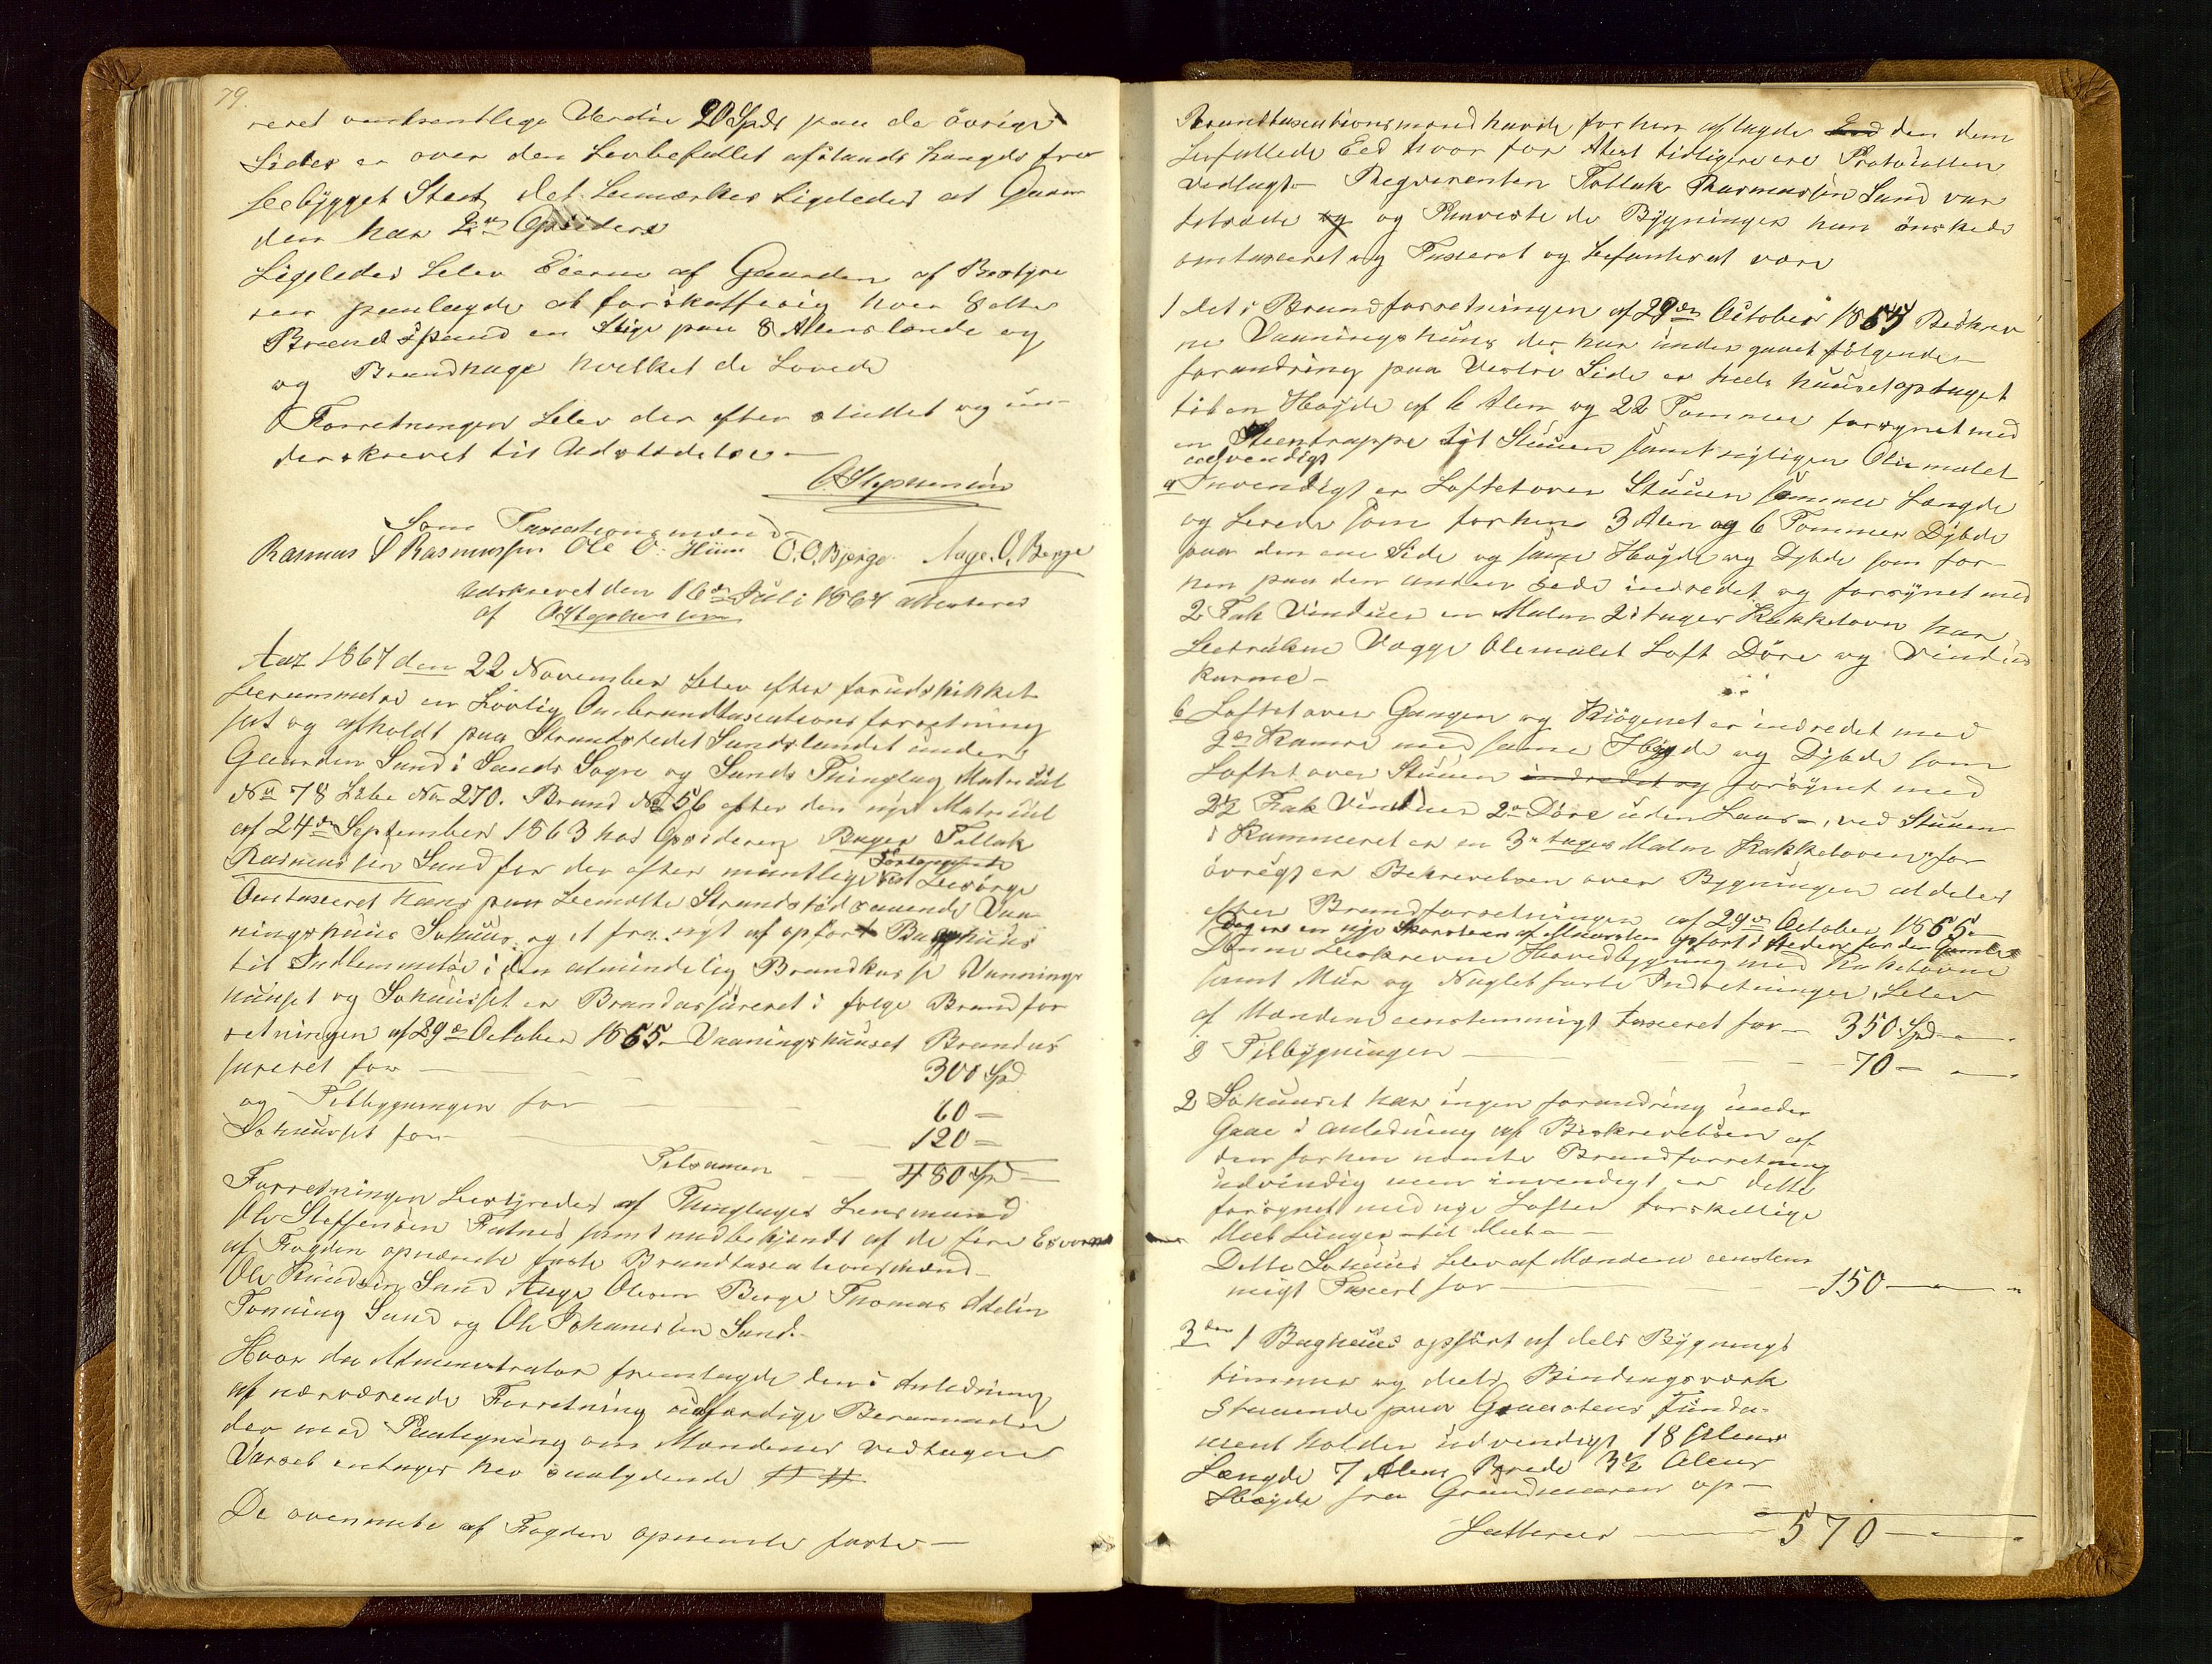 79.
reret omtrentlige Verdie 20 Spdr paa de övrige
Sider er over den Lovbefallet afstands Længde fra
bebygget Sted det bemærkes Ligeledes at Gaar
den har 2de Opsidere
Ligeledes blev Eierne af Gaarden af Bestyre
ren paalagde at forskaffe sig hver 8 etter
Brand spand en Stige paa 8 Alens længde og
og Brandhage hvilket de Lovede
Forretningen blev der efter sluttet og un-
derskrevet til Udstædelse.
O Steffensen
Som Taxationsmænd
Rasmus P Rasmussen Ole O. Hiim O. O. Bjerge Aage. O. Berge
Udskrevet den 16de Juli 1867 attesteres
af O Steffensen
Aar 1867 den 22 November blev efter forudskikket
berammelse en Lovlig Ombrandtaxationsforretning
sat og afholdt paa Strandstedet Sandslandet under
Gaarden Sand i Sands Sogn og Sands Thinglag Matricul
No 78 Löbe No 270. Brand No 56 efter den nye Matricul
af 24de September 1863 hos Opsideren Bager Tollak
Rasmussen Sand for der efter mündtlige Forlangende
ved besörge
Omtaxeret hans paa bemelte Strandsted staaende Vaa
ningshuus Söhuus og et fra nyt af opfört Baghuus
til Indlemmelse i den almindelig Brandkasse Vaanings
huuset og Söhuuset er Brandassureret i fölge Brandfor
retningen af 29de October 1855. Vaaningshuuset Brandas
sureret for 300 Spd
og Tilbygningen for 60 —
Söhuuset for 120 —
Tilsamen 480 Spd
Forretningen bestyredes af Thinglagets Lensmand
Ole Steffensen Fatnes samt nedbekjendt af de fire Eesvorne
af Fogden opnævnte faste Brandtaxationsmænd
Ole Knudsen Sand Aage Olesen Berge Thomas Adelin
Tonning Sand og Ole Johanesen Sand.
Hvor da Administrator fremlagde den i Anledning
af nærværende Forretning udfærdige Berammelse
der med Paategning om Mændenes vedtagne
Varsel indtages her saalydende # #
De ovennævnte af Fogden opnævnte faste —
Brandtaxationsmænd havde forhen aflagde Eed den dem
befallede Eed hvor for Atest tidligere ere Protocollen
vedlagt. Reqverenten Tollak Rasmussen Sand var
tilstæde og og Paaviste de Bygninger han önskede
omtaxeret og Taxeret og befantes at være
1 det i Brandforretningen af 29de October 1855 Beskrev
ne Vaaningshuus der har undergaaet fölgende
forandring paa Vestre Side er hele huuset optaget
til en Høyde af 6 Alen og 22 Tommer forsynet med
en Steentrappe til Stuuen samt nyligen Oliemalet
udvendigt
a Invendigt er Loftet over Stuuen samme Længde
og brede som forhen 3 Alen og 6 Tommer Dybde
paa den ene Side og same Høyde og Dybde som for-
hen paa den anden Side indredet og forsynet med
2 Fak Vinduer en Malm 2 Etages Kakkelovn har
betrukne Vægge Oliemalet Loft Döre og Vindus
karme —
b Loftet over Gangen og Kiögenet er indredet med
2de Kamre med same Høyde og Dybde som
Loftet over Stuuen indredet og forsynet med
2½ Fak Vinduer 2de Döre uden Laase, ved Stuuen
i Kammeret er en 3 etages Malm Kakkelovn for
övrigt er Bekrevelsen over Bygningen aldeles
efter Brandforretningen af 29de October 1855.
Dog er en nye Skorsteen af Muursten opfört i steden for den Gamle
Denne beskrevne Hovedbygning med Kakelovne
samt Mur og Naglefaste Indretninger, blev
af Mændene eenstemmigt taxeret for — 350 Spd —
D Tilbygningen — 70 —
2 Söhuuset har ingen forandring under
Gaae i anledning af Beskrevelsen af
den forhen nævnte Brandforretning
udvendig men invendigt er dette
forsynet med nye Lofter forskellige
Dette Söhuus blev af Mændene eenstem
migt Taxert for — 150 —
3die 1 Baghuus opfört af dels Bygnings
timmer og deels Bindingsværk
Staaende paa Graastens Funda-
ment holder udvendigt 18 Alens
Længde 7 Alens Brede 3½ Alens
Høyde fra Grundmuren op —
Latterer — 570 —